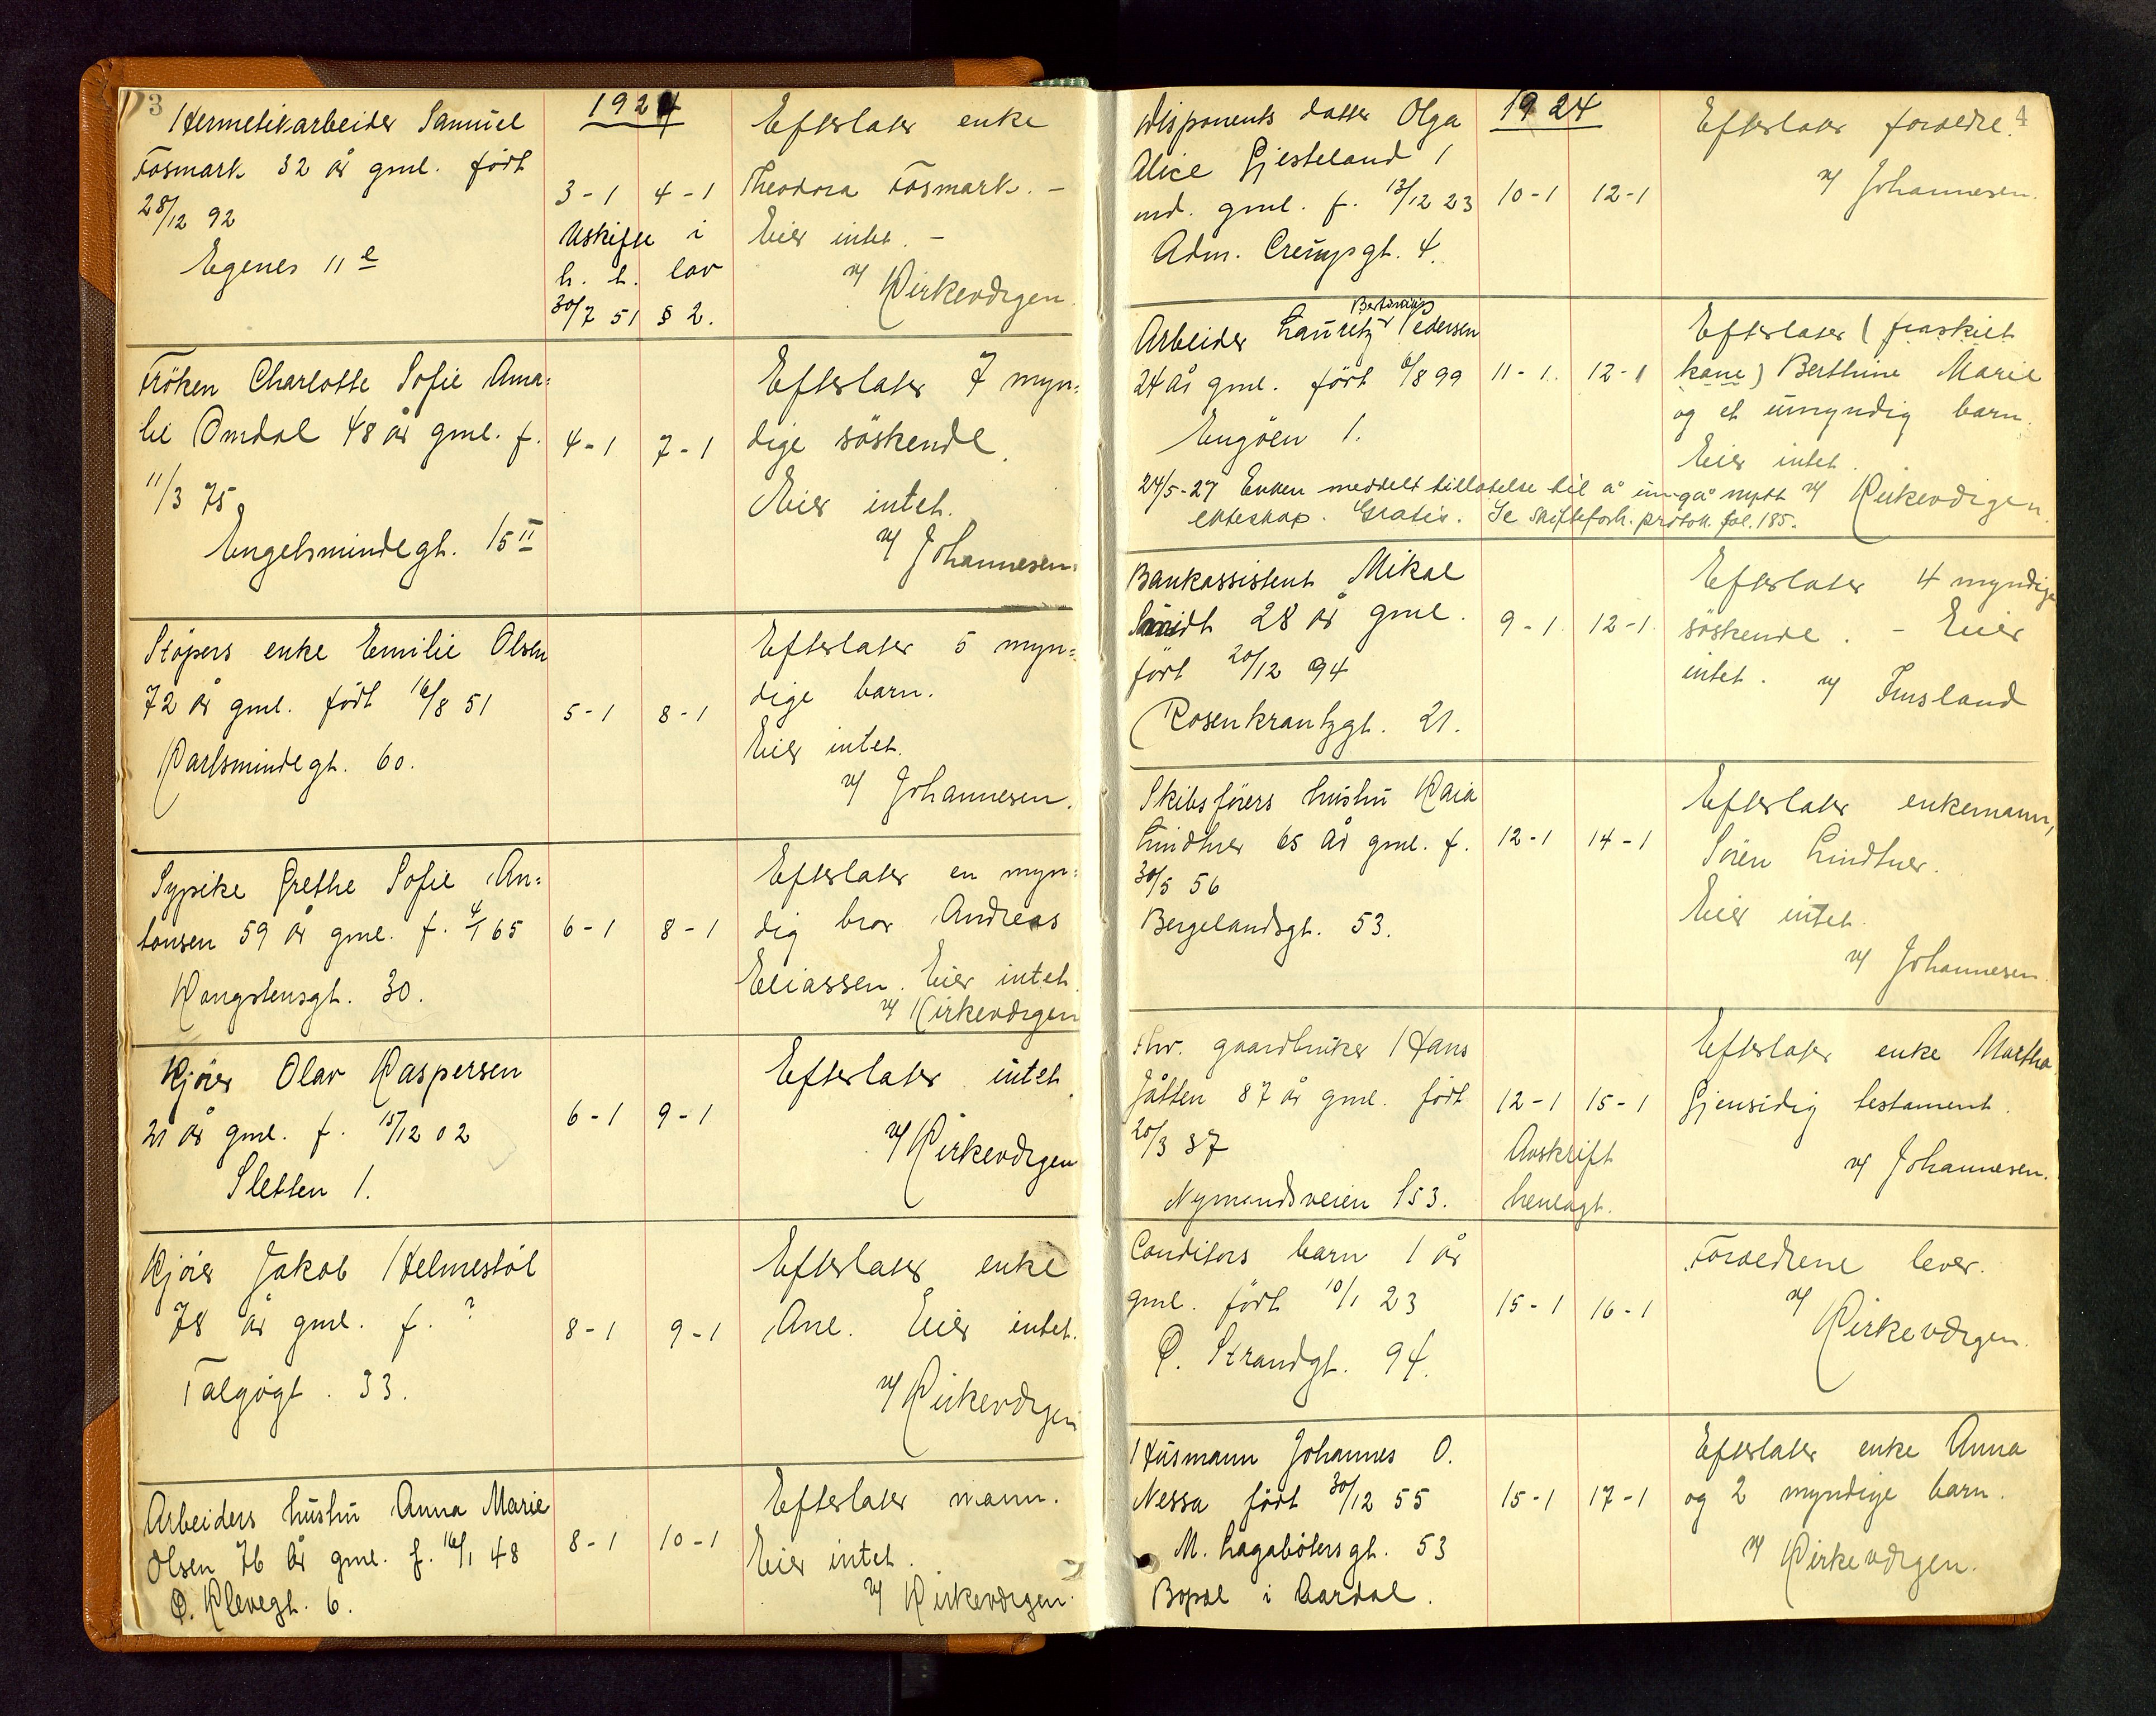 3
1924
Hermetikarbeider Samuel
Fosmark 32 år gml. født
28/12 92
Egenes 11 e
3-1 4-1
Uskifte i
h. t. lov
30/7 51 § 2.
Efterlater enke
Theodora Fosmark. -
Eier intet. -
v/ Kirkevergen.
Frøken Charlotte Sofie Ama=
lie Omdal 48 år gml. f.
11/3 75
Engelsmindegt. 15 II
4-1 7-1
Efterlater 7 myn=
dige søskende.
Eier intet.
v/ Johannesen.
Støpers enke Emilie Olsen
72 år gml. født 16/8 51
Karlsmindegt. 60.
5-1 8-1
Efterlater 5 myn=
dige barn.
Eier intet.
v/ Johannesen.
Sypike Grethe Sofie An=
tonsen 59 år gml. f. 4/1 65
Kongstensgt. 30.
6-1 8-1
Efterlater en myn=
dig bror Andreas
Eliassen. Eier intet.
v/ Kirkevergen
Kjører Olav Kaspersen
21 år gml. f. 15/12 02
Sletten 1.
6-1 9-1
Efterlater intet.
v/ Kirkevergen
Kjører Jakob Helmestøl
78 år gml. f. ?
Talgøgt. 33.
8-1 9-1
Efterlater enke
Ane. Eier intet.
v/ Kirkevergen
Arbeiders hustru Anna Marie
Olsen 76 år gml. f. 16/1 48
Ø. Klevegt. 6.
8-1 10-1
Efterlater mann.
Eier intet.
v/ Kirkevergen.
4
1924
Disponents datter Olga
Alice Gjesteland 1
md. gml. f. 13/12 23
Adm. Creuysgt. 4.
10-1 12-1
Efterlater foreldre.
v/ Johannesen.
Bertinius
Arbeider Lauritz Pedersen
24 år gml. født 6/8 99
Engøen 1.
11-1. 12-1
Efterlater (fraskilt
kone) Berthine Marie
og et umyndig barn.
Eier intet.
v/ Kirkevergen.
24/5-27 Enken meddelt tillatelse til å inngå nytt
ekteskap. Gratis. Se skifteforh. protok. fol. 185.
Bankassistent Mikal
Smidt 28 år gml.
født 20/12 94
Rosenkrantzgt. 21.
9-1. 12-1.
Efterlater 4 myndige
søskende. - Eier
intet. v/ Fusland
Skibsførers hustru Kaia
Lindtner 65 år gml. f.
30/5 56
Bergelandsgt. 53.
12-1 14-1
Efterlater enkemann,
Søren Lindtner.
Eier intet.
v/ Johannesen.
Fhv. gaardbruker Hans
Jåtten 87 år gml. født
20/3 37
Nymandsveien 153.
12-1 15-1
Avskrift
henlagt.
Efterlater enke Martha
Gjensidig testament.
v/ Johannesen.
Conditors barn 1 år
gml. født 10/1 23
Ø. Strandgt. 94.
15-1 16-1
Foreldrene lever.
v/ Kirkevergen.
Husmann Johannes O.
Nessa født 30/12 55
M. Lagabøtersgt. 53
Bopæl i Aardal.
15-1 17-1
Efterlater enke Anna
og 2 myndige barn.
v/ Kirkevergen.